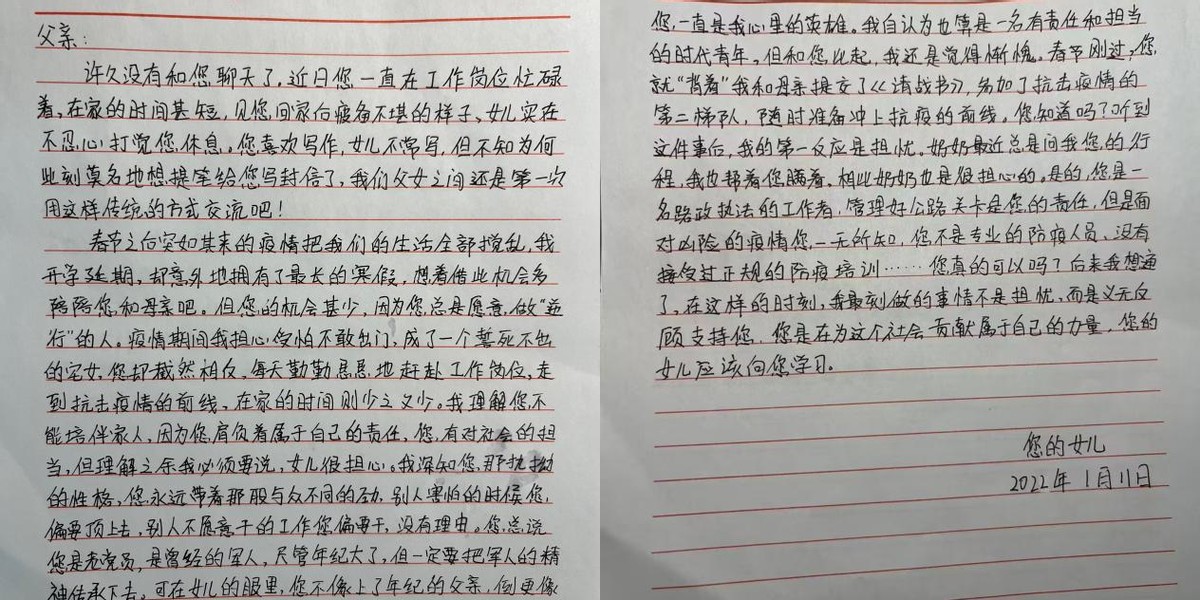 父亲:
许久没有和您聊天了，近日您一直在工作岗位忙碌
着，在家的时间甚短，见您回家后疲备不堪的样子，女儿实在
不忍心打觉您休息。您喜欢写作，女儿不常写，但不知为何
此刻莫名地想提笔给您写封信了，我们父女之间还是第一次
用这样传统的方式交流吧！
春节之后突如其来的疫情把我们的生活全部搅乱，我
开学延期，却意外地拥有了最长的寒假，想着借此机会多
陪陪您和母亲吧。但您的机会甚少，因为您总是愿意做“逆
行”的人。疫情期间我担心受怕不敢出门，成了一个誓死不出
的宅女，您却截然相反，每天勤勤恳恳地赶赴工作岗位，走
到抗击疫情的前线，在家的时间则少之又少。我理解您不
能培伴家人，因为您肩负着属于自己的责任，您有对社会的担
当，但理解之余我必须要说，女儿很担心。我深知您那执拗
的性格，您永远带着那股与众不同的劲，别人害怕的时候您
偏要顶上去，别人不愿意干的工作您偏要干，没有理由。您总说
您是老党员，是曾经的军人，尽管年纪大了，但一定要把军人的精
神传承下去。可在女儿的眼里，您不像上了年纪的父亲，倒更像
您，一直是我心里的英雄。我自认为也算是一名有责任和担当
的时代青年，但和您比起，我还是觉得惭愧。春节刚过，您
就“背着”我和母亲提交了《请战书》，参加了抗击疫情的
第二梯队，随时准备冲上抗疫的前线。您知道吗？听到
这件事后，我的第一反应是担忧。奶奶最近总是问我您的行
程，我也帮着您瞒着，相比奶奶也是很担心的。是的，您是一
名路政执法的工作者，管理好公路关卡是您的责任，但是面
对凶险的疫情您一无所知，您不是专业的防疫人员、没有
接受过正规的防疫培训……您真的可以吗？后来我想通
了，在这样的时刻，我最刻做的事情不是担忧，而是义无反
顾支持您，您是在为这个社会贡献属于自己的力量，您的
女儿应该向您学习。
您的女儿
2022年1月11日